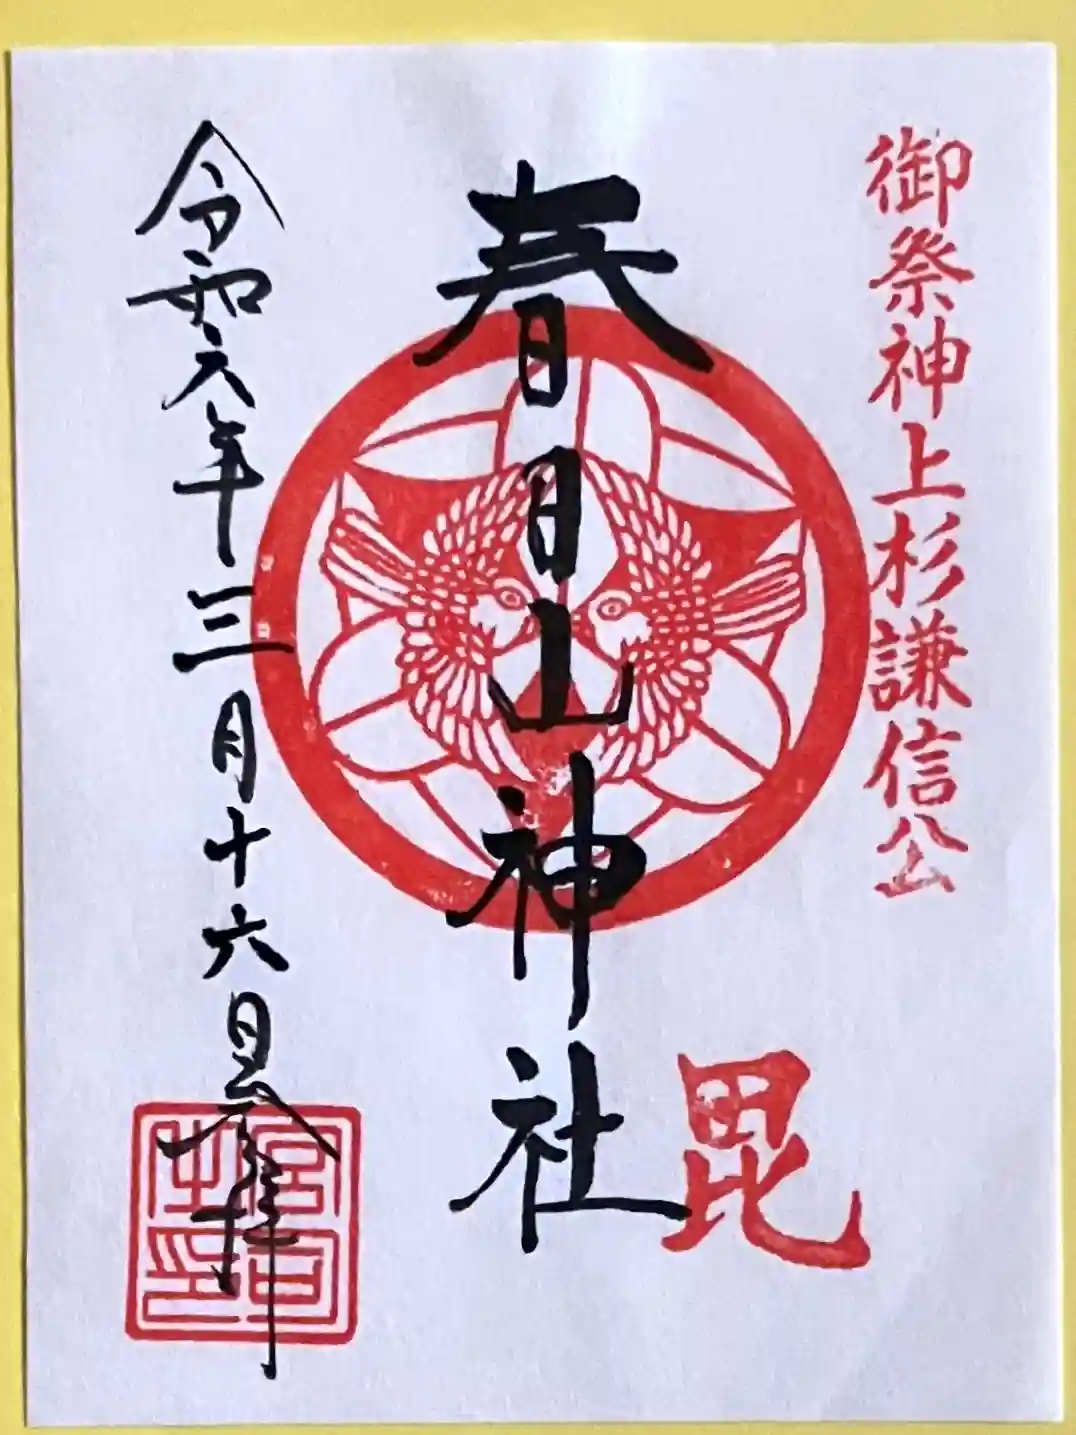 御祭神上杉謙信公
毘
春日山神社
令和六年三月十六日参拝
宮司之印